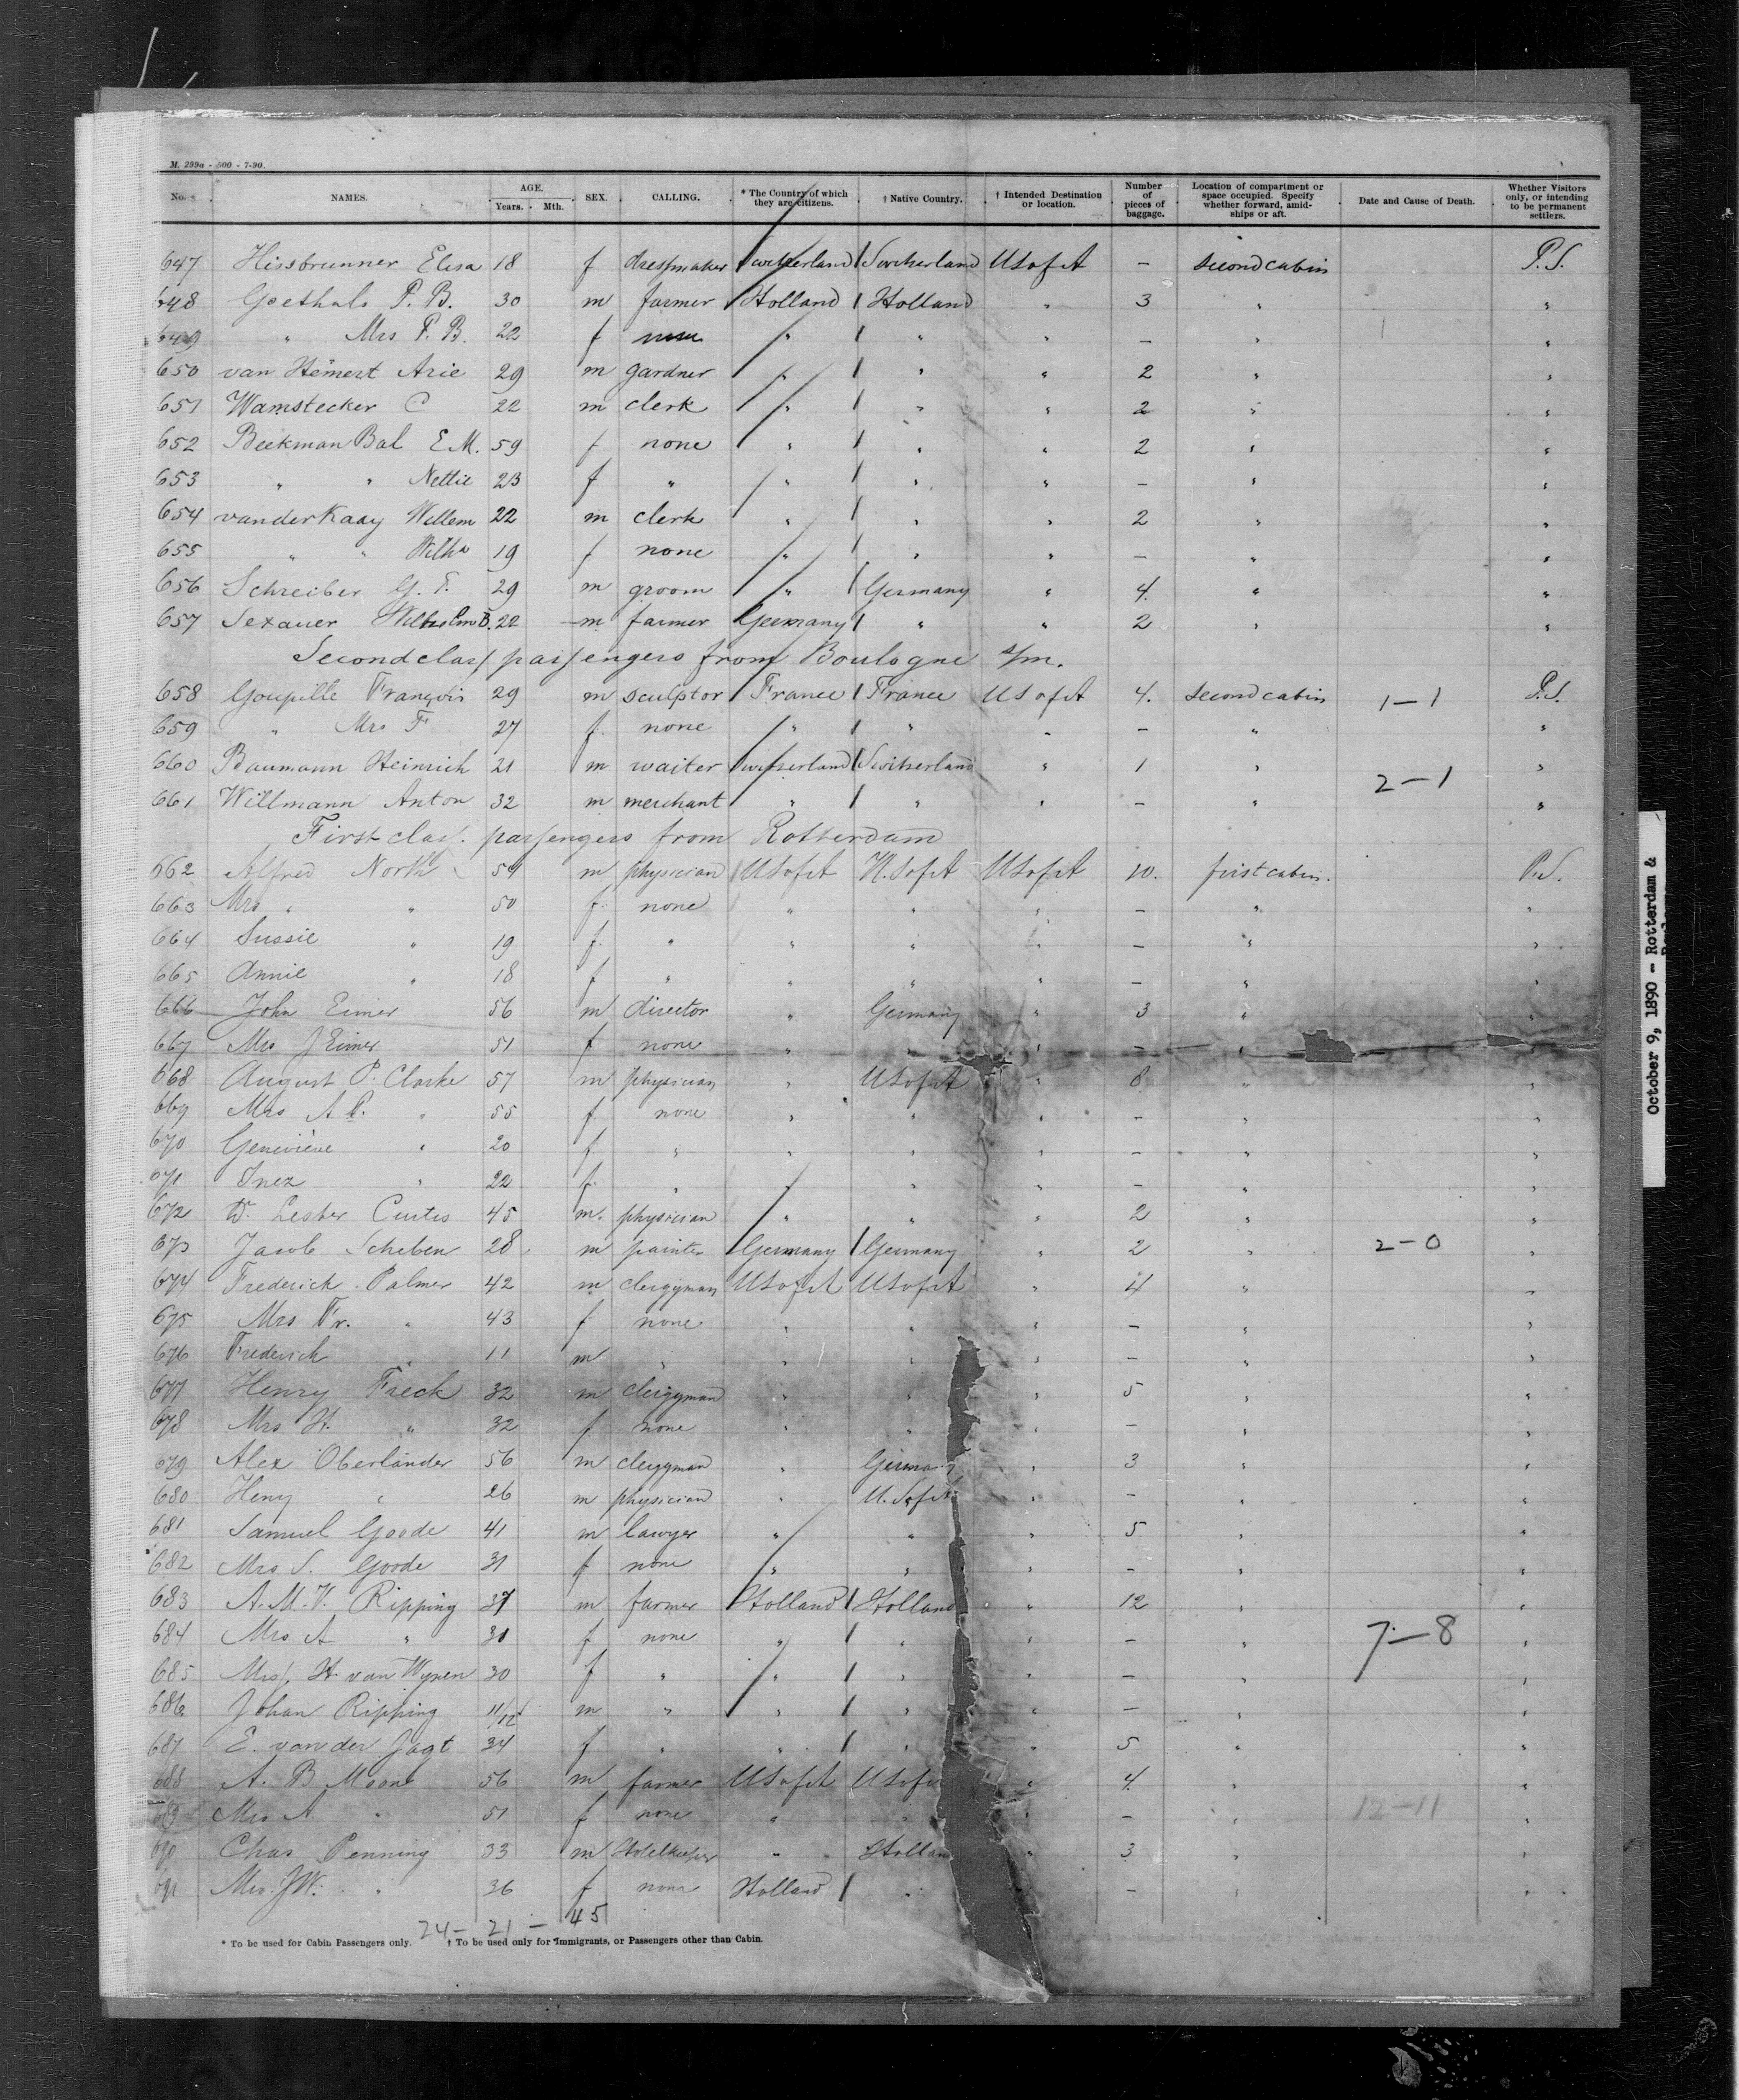 M. 299a - 500 - 7-90.
No. NAMES. AGE. Years. Mth. SEX. CALLING. * The Country of which they are citizens. † Native Country. † Intended Destination or location. Number of pieces of baggage. Location of compartment or space occupied. Specify whether forward, amidships or aft. Date and Cause of Death. Whether Visitors only, or intending to be permanent settlers.
647 Hissbrunner Elisa 18 f dressmaker Switzerland Switzerland USofA - second cabin P.S.
648 Goethals P. B. 30 m farmer Holland Holland " 3 " "
649 " Mrs P. B. 22 f " " " - " "
650 van Hemert Arie 29 m gardner " " " 2 " "
651 Wamstecker C 22 m clerk " " " 2 " "
652 Beekman Bal E.M. 59 f none " " " 2 " "
653 " " Nettie 23 f " " " " - " "
654 van der Kaay Willem 22 m clerk " " " 2 " "
655 " " Wilha 19 f none " " " - " "
656 Schreiber G. F. 29 m groom " Germany " 4. " "
657 Sexauer Wilhelm B. 22 m farmer Germany " " 2 " "
Second class passengers from Boulogne s/m.
658 Goupille François 29 m sculptor France France USofA 4. second cabin 1-1 P.S.
659 " Mrs F 27 f. none " " " - " "
660 Baumann Heinrich 21 m waiter Switzerland Switzerland " 1 " "
661 Willmann Anton 32 m merchant " " " - " 2-1 "
First class. passengers from Rotterdam
662 Alfred North 59 m physician USofA U.SofA USofA 10. first cabin. P.S.
663 Mrs " " 50 f. none " " " - " "
664 Sussie " 19 f. " " " " - " "
665 Annie " 18 f " " " " - " "
666 John Eimer 56 m director " Germany " 3 " "
667 Mrs J Eimer 51 f none " " " - " "
668 August P. Clarke 57 m physician " USofA " 8 " "
669 Mrs A P. " 55 f none " " " - " "
670 Geneviève " 20 f " " " " - " "
671 Inez " 22 f. " " " " - " "
672 Lester Curtis 45 m. physician " " " 2 " "
673 Jacob Scheben 28. m painter Germany Germany " 2 " 2-0 "
674 Frederick Palmer 42 m clergyman USofA USofA " 4 " "
675 Mrs Fr. " 43 f none " " " - " "
676 Frederick " 11 m " " " " - " "
677 Henry Freck 32 m clergyman " " " 5 " "
678 Mrs H. " 32 f none " " " - " "
679 Alex Oberländer 56 m clergyman " Germany " 3 " "
680 Heny " 26 m physician " U.SofA " - " "
681 Samuel Goode 41 m lawyer " " " 5 " "
682 Mrs S. Goode 31 f none " " " - " "
683 A. M. V. Ripping 37 m farmer Holland Holland " 12 " "
684 Mrs A " 31 f none " " " - " 7-8 "
685 Miss. H. van Wynen 30 f " " " " - " "
686 Johan Ripping 11/12 m " " " " - " "
687 E. van der Jagt 34 f " " " " 5 " "
688 A. B. 56 m farmer USofA USofA " 4. " "
689 Mrs A " 51 f none " " " - " 12-11 "
690 Chas Penning 33 m Hotelkeeper " Holland " 3 " "
691 Mrs. J W. " 36 f none Holland " " - " "
24 - 21 - 45
* To be used for Cabin Passengers only. † To be used only for Immigrants, or Passengers other than Cabin.
October 9, 1890 - Rotterdam &